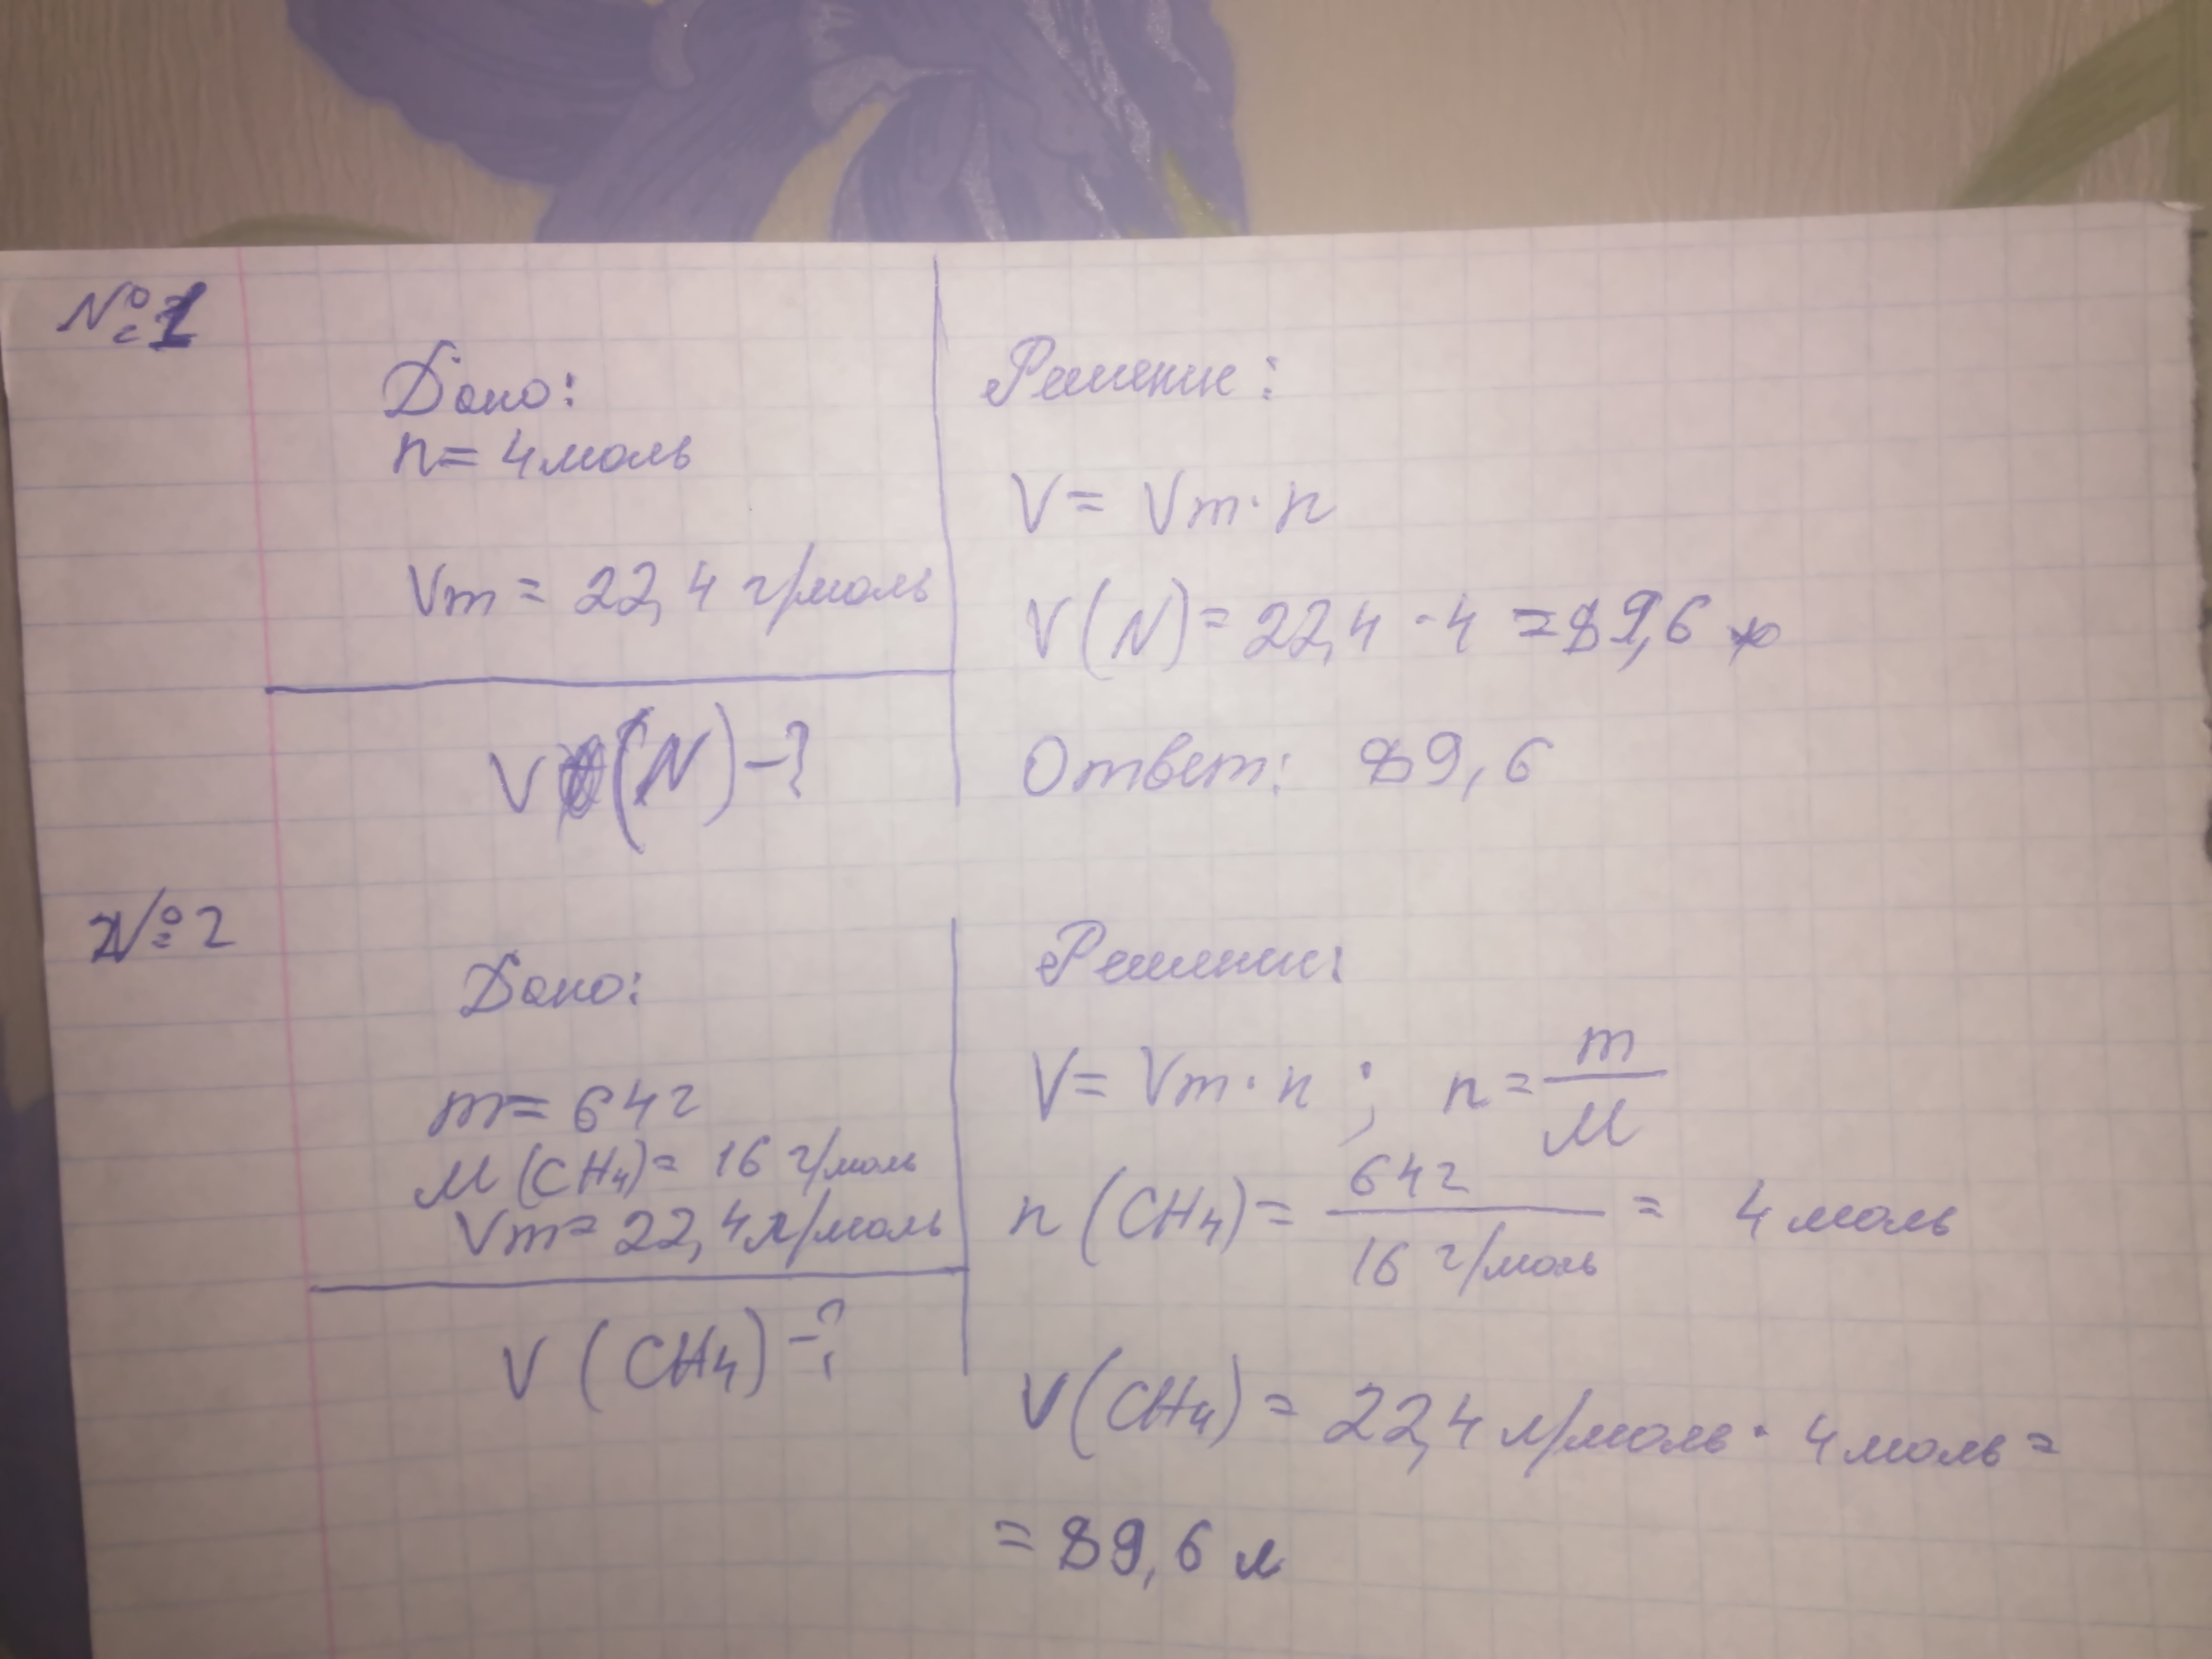 №1
Дано:
n = 4 моль
Vm = 22,4 г/моль
V (N) - ?
Решение:
V = Vm · n
V (N) = 22,4 · 4 = 89,6
Ответ: 89,6
№2
Дано:
m = 64 г
M (CH4) = 16 г/моль
Vm = 22,4 л/моль
V (CH4) - ?
Решение:
V = Vm · n ; n = m / M
n (CH4) = 64 г / 16 г/моль = 4 моль
V (CH4) = 22,4 л/моль · 4 моль =
= 89,6 л